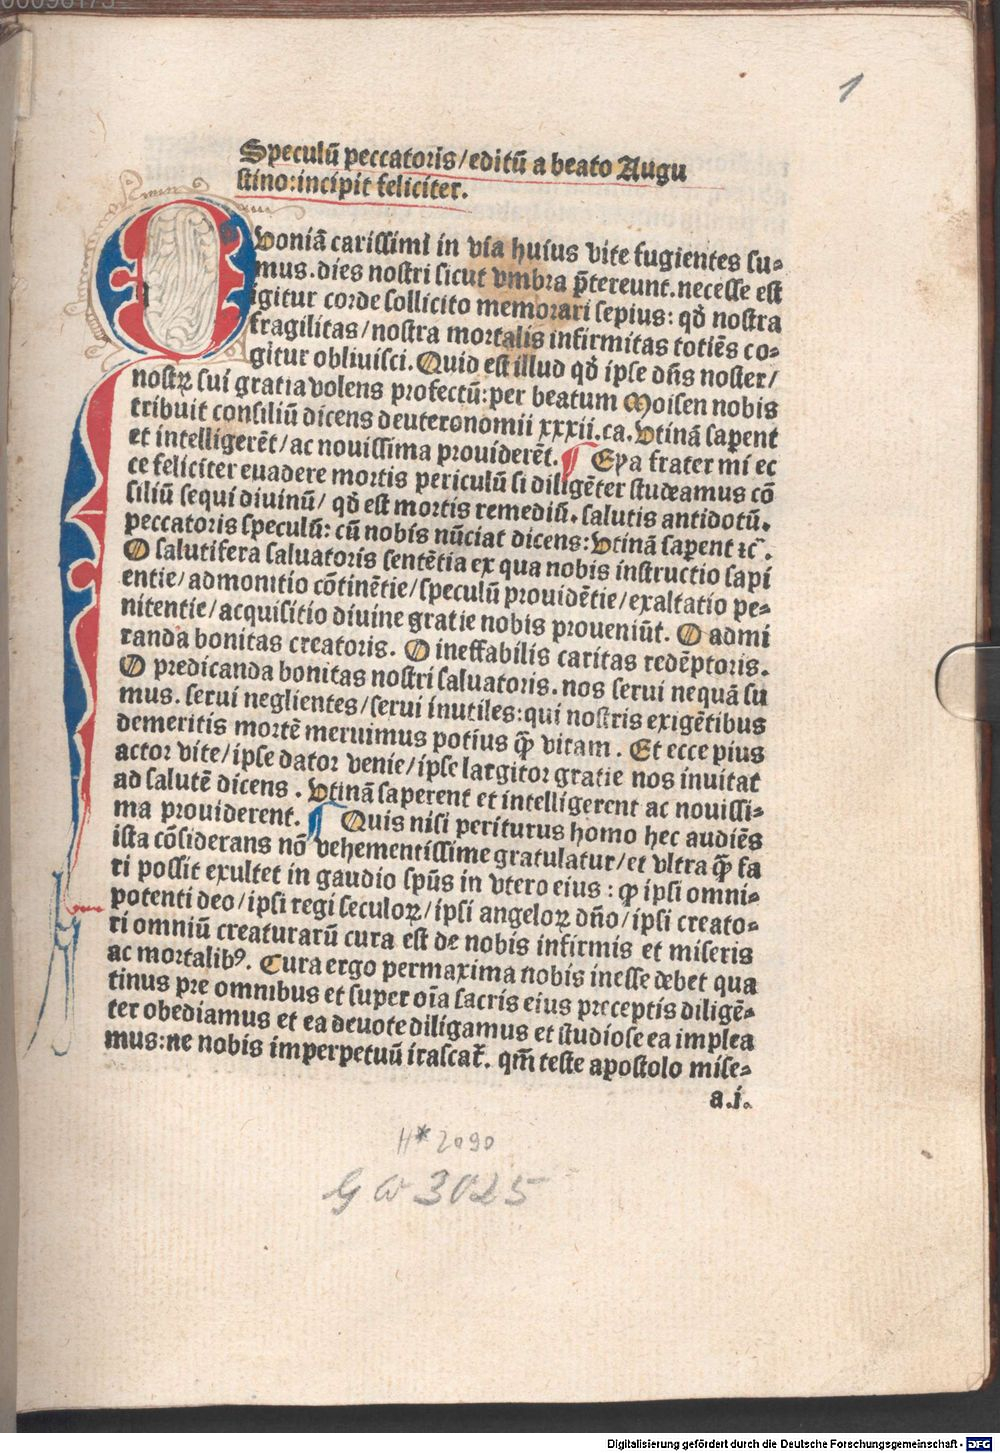 1
Speculū peccatoris/editū a beato Augu
stino:incipit feliciter.
Uoniā carissimi in via huius vite fugientes su⸗
mus.dies nostri sicut vmbra p̄tereunt.necesse est
igitur corde sollicito memorari sepius: qd̄ nostra
fragilitas/nostra mortalis infirmitas totiēs co⸗
gitur obliuisci. Quid est illud qd̄ ipse dn̄s noster/
nostrꝝ sui gratia volens profectū:per beatum Moisen nobis
tribuit consiliū dicens deuteronomii xxxii.ca. Utinā sapent
et intelligerēt/ac nouissima prouiderēt. ¶ Eya frater mi ec
ce feliciter euadere mortis periculū si diligēter studeamus cō
siliū sequi diuinū/ qd̄ est mortis remediū. salutis antidotū.
peccatoris speculū: cū nobis nūciat dicens: Utinā sapent ⁊c̄.
O salutifera saluatoris sentētia ex qua nobis instructio sapi
entie/admonitio cōtinētie/speculū prouidētie/exaltatio pe⸗
nitentie/acquisitio diuine gratie nobis proueniūt. O admi
randa bonitas creatoris. O ineffabilis caritas redēptoris.
O predicanda bonitas nostri saluatoris.nos serui nequā su
mus. serui neglientes/serui inutiles:qui nostris exigētibus
demeritis mortē meruimus potius qꝫ̄ vitam. Et ecce pius
actor vite/ipse dator venie/ipse largitor gratie nos inuitat
ad salutē dicens. Utinā saperent et intelligerent ac nouissi⸗
ma prouiderent. ¶ Quis nisi periturus homo hec audiēs
ista cōsiderans nō vehementissime gratulatur/et vltra qꝫ̄ fa
ri possit exultet in gaudio spūs in vtero eius: ꝙ ipsi omni⸗
potenti deo/ipsi regi seculoꝝ/ipsi angeloꝝ dn̄o/ipsi creato⸗
ri omniū creaturarū cura est de nobis infirmis et miseris
ac mortalibꝰ. Cura ergo permaxima nobis inesse debet qua
tinus pre omnibus et super oīa sacris eius preceptis diligē⸗
ter obediamus et ea deuote diligamus et studiose ea implea
mus:ne nobis imperpetuū irascat᷑. qm̄ teste apostolo mise⸗
a.i.
H* 2090
GW 3025
Digitalisierung gefördert durch die Deutsche Forschungsgemeinschaft - DFG